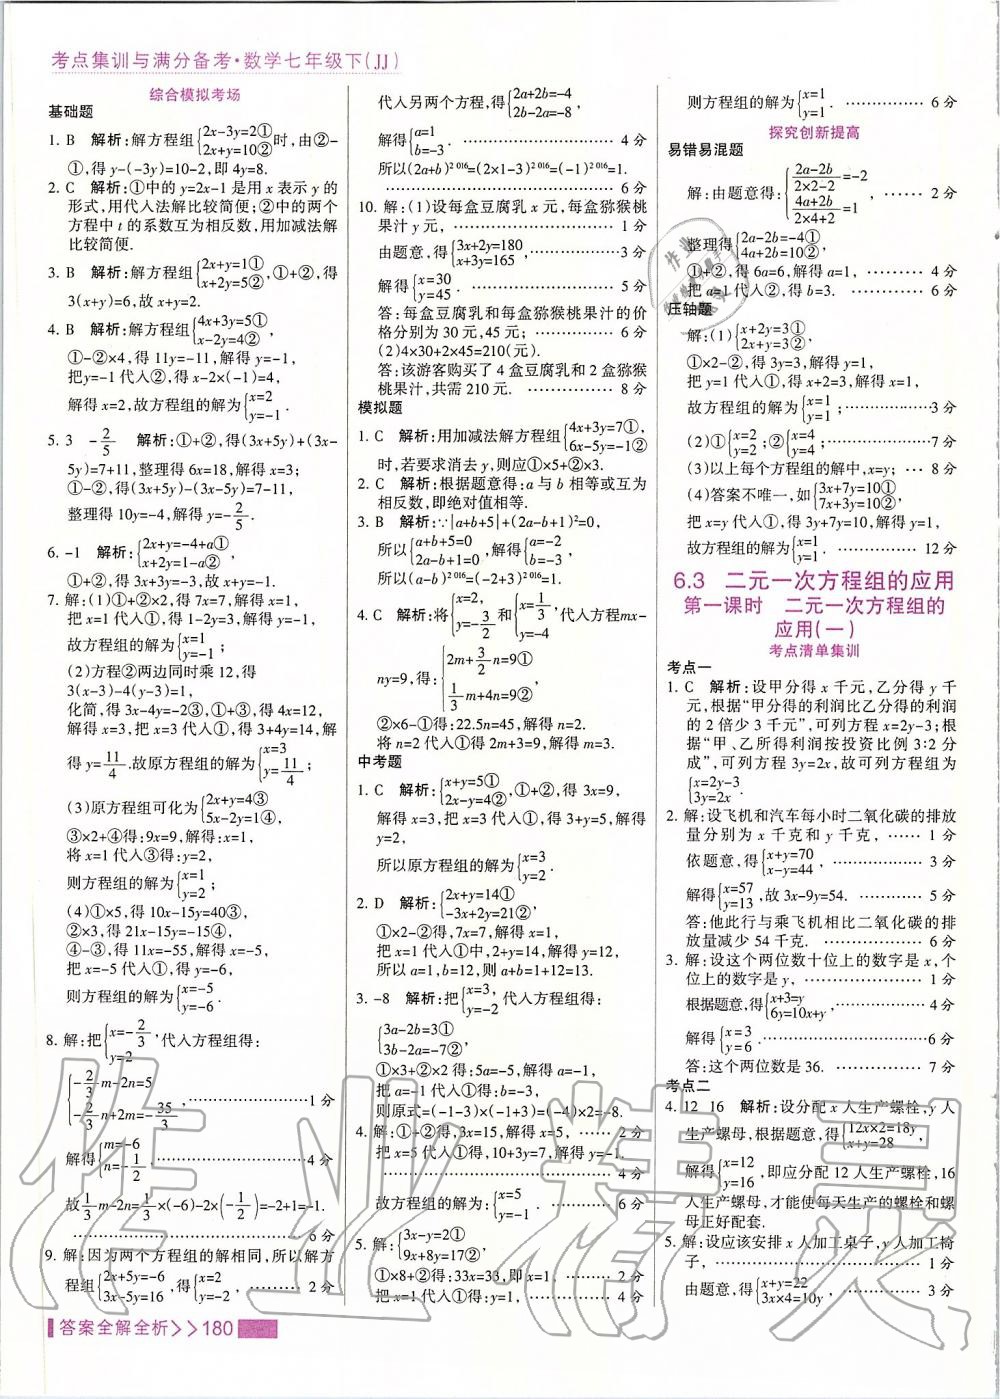 考点集训与满分备考·数学七年级下(JJ)
综合模拟考场
基础题
1. B 解析:解方程组{2x-3y=2① 2x+y=10②时,由②-
①,得y-(-3y)=10-2,即4y=8.
2. C 解析:①中的y=2x-1是用x表示y的
形式,用代入法解比较简便;②中的两个
方程中t的系数互为相反数,用加减法解
比较简便.
3. B 解析:解方程组{2x+y=1① x+2y=5②,①+②,得
3(x+y)=6,故x+y=2.
4. B 解析:解方程组{4x+3y=5① x-2y=4②,
①-②×4,得11y=-11,解得y=-1,
把y=-1代入②,得x-2×(-1)=4,
解得x=2,故方程组的解为{x=2 y=-1.
5. 3 -2/5 解析:①+②,得(3x+5y)+(3x-
5y)=7+11,整理得6x=18,解得x=3;
①-②,得(3x+5y)-(3x-5y)=7-11,
整理得10y=-4,解得y=-2/5.
6. -1 解析:{2x+y=-4+a① x+2y=1-a②,
①+②,得3x+3y=-3,故x+y=-1.
7. 解:(1)①+②×2,得7x=7,解得x=1,
把x=1代入①,得1-2y=3,解得y=-1,
故方程组的解为{x=1 y=-1;
(2)方程②两边同时乘12,得
3(x-3)-4(y-3)=1,
化简,得3x-4y=-2③,①+③,得4x=12,
解得x=3,把x=3代入①,得3+4y=14,解
得y=11/4.故原方程组的解为{x=3 y=11/4;
(3)原方程组可化为{2x+y=4③ 5x-2y=1④,
③×2+④得:9x=9,解得:x=1,
将x=1代入③得:y=2,
则方程组的解为{x=1 y=2;
(4)①×5,得10x-15y=40③,
②×3,得21x-15y=-15④,
④-③,得11x=-55,解得x=-5,
把x=-5代入①,得y=-6,
则方程组的解为{x=-5 y=-6.
8. 解:把{x=-2/3 y=2,代入方程组得:
{-2/3m-2n=5 -2/3n+2m=-35/3, 1分
解得{m=-6 n=-1/2. 4分
故1/3m-2n=1/3×(-6)-2×(-1/2)=-2+1=-1.
6分
9. 解:因为两个方程组的解相同,所以解方
程组{2x+5y=-6 3x-5y=16,得{x=2 y=-2, 2分
代入另两个方程,得{2a+2b=-4 2b-2a=-8,
解得{a=1 b=-3. 4分
所以(2a+b)^2 016=(2×1-3)^2 016=(-1)^2 016=1.
6分
10. 解:(1)设每盒豆腐乳x元,每盒猕猴桃
果汁y元, 1分
由题意,得{3x+2y=180 x+3y=165, 3分
解得{x=30 y=45. 5分
答:每盒豆腐乳和每盒猕猴桃果汁的价
格分别为30元,45元; 6分
(2)4×30+2×45=210(元).
答:该游客购买了4盒豆腐乳和2盒猕猴
桃果汁,共需210元. 8分
模拟题
1. C 解析:用加减法解方程组{4x+3y=7① 6x-5y=-1②,
时,若要求消去y,则应①×5+②×3.
2. C 解析:根据题意得:a与b相等或互为
相反数,即绝对值相等.
3. B 解析:∵|a+b+5|+(2a-b+1)²=0,
所以{a+b+5=0 2a-b+1=0,解得{a=-2 b=-3,
所以(a-b)^2 016=(-2+3)^2 016=1.
4. C 解析:将{x=2, y=-3/2和{x=1/3, y=-4,代入方程mx-
ny=9,得:{2m+3/2n=9① 1/3m+4n=9②,
②×6-①得:22.5n=45,解得n=2.
将n=2代入①得2m+3=9,解得m=3.
中考题
1. C 解析:{x+y=5① 2x-y=4②,①+②,得3x=9,
解得x=3,把x=3代入①,得3+y=5,解得
y=2,
所以原方程组的解为{x=3 y=2.
2. D 解析:{2x+y=14① -3x+2y=21②,
①×2-②得,7x=7,解得x=1,
把x=1代入①中,2+y=14,解得y=12,
所以a=1,b=12,则a+b=1+12=13.
3. -8 解析:把{x=3, y=-2代入方程组得:
{3a-2b=3① 3b-2a=-7②,
①×3+②×2得:5a=-5,解得a=-1,
把a=-1代入①得:b=-3,
则原式=(-1-3)×(-1+3)=(-4)×2=-8.
4. 解:①+②得,3x=15,解得x=5, 2分
把x=5代入①得,10+3y=7,解得y=-1.
4分
故方程组的解为:{x=5 y=-1. 6分
5. 解:{3x-y=2① 9x+8y=17②,
①×8+②得:33x=33,即x=1, 2分
把x=1代入①得:y=1, 4分
则方程组的解为{x=1 y=1. 6分
探究创新提高
易错易混题
解:由题意得:{(2a-2b)/(2×2-2)=-2 (4a+2b)/(2×4+2)=1, 2分
整理得{2a-2b=-4① 4a+2b=10②,
①+②,得6a=6,解得a=1, 4分
把a=1代入②,得b=3. 6分
压轴题
解:(1){x+2y=3① 2x+y=3②,
①×2-②,得3y=3,解得y=1,
把y=1代入①,得x+2=3,解得x=1,
故方程组的解为{x=1 y=1; 3分
(2)①{x=2 y=2;②{x=4 y=4; 7分
(3)以上每个方程组的解中,x=y; 8分
(4)答案不唯一,如{3x+7y=10① 7x+3y=10②,
把x=y代入①,得3y+7y=10,解得y=1,
故方程组的解为{x=1 y=1. 12分
6.3 二元一次方程组的应用
第一课时 二元一次方程组的
应用(一)
考点清单集训
考点一
1. C 解析:设甲分得x千元,乙分得y千
元,根据“甲分得的利润比乙分得的利润
的2倍少3千元”,可列方程x=2y-3;根
据“甲、乙所得利润按投资比例3:2分
成”,可列方程3y=2x,故可列方程组为
{x=2y-3 3y=2x.
2. 解:设飞机和汽车每小时二氧化碳的排放
量分别为x千克和y千克, 1分
依题意,得{x+y=70 x-y=44, 3分
解得{x=57 y=13,故3x-9y=54. 5分
答:他此行与乘飞机相比二氧化碳的排
放量减少54千克. 6分
3. 解:设这个两位数十位上的数字是x,个
位上的数字是y, 1分
根据题意,得{x+3=y 6y=10x+y, 4分
解得{x=3 y=6. 6分
答:这个两位数是36. 7分
考点二
4. 12 16 解析:设分配x人生产螺栓,y人
生产螺母,根据题意,得{12x×2=18y x+y=28,
解得{x=12 y=16,即应分配12人生产螺栓,16
人生产螺母,才能使每天生产的螺栓和螺
母正好配套.
5. 解:设应该安排x人加工桌子,y人加工椅
子, 1分
由题意,得{x+y=22 3x×4=10y, 3分
答案全解全析>>180
作业精灵